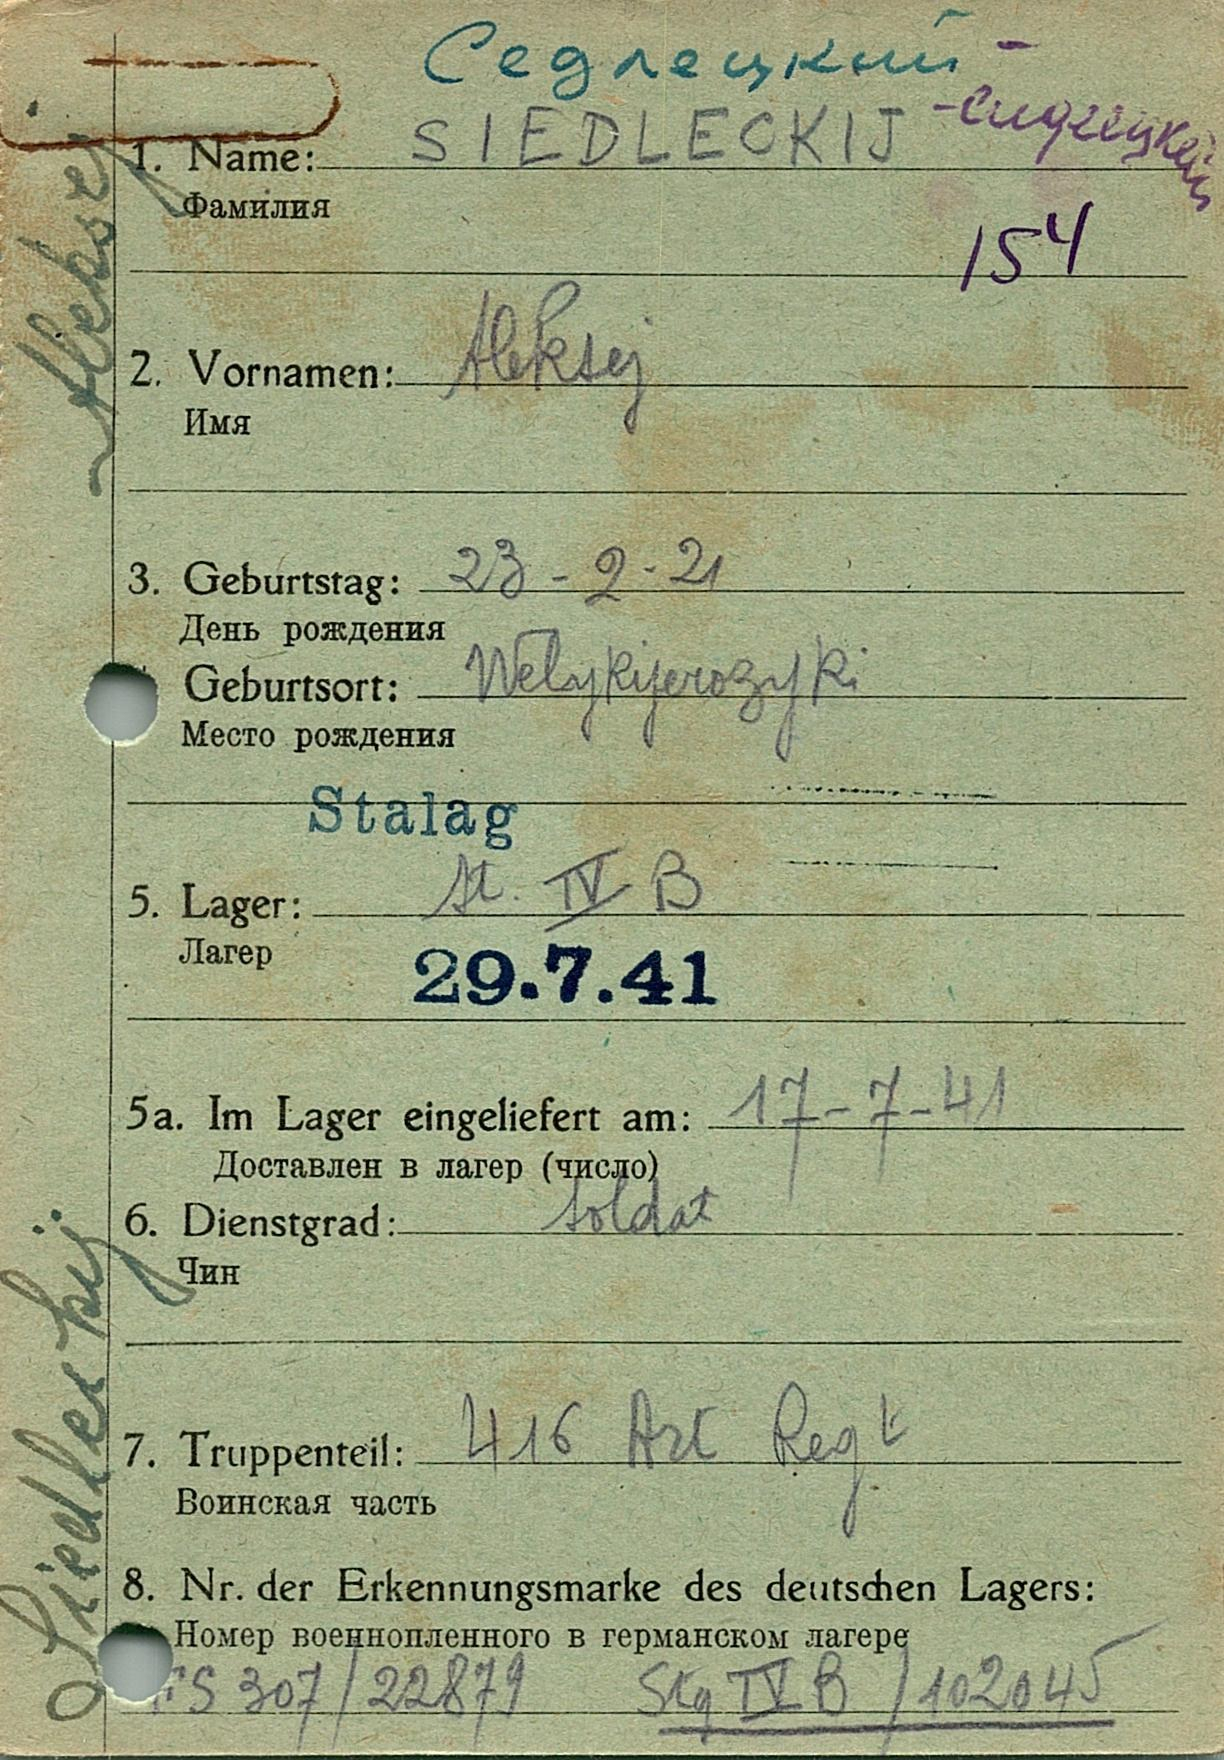 Седлецкий -
SIEDLECKIJ -сидлецкий
1. Name:
Фамилия
154
2. Vornamen: Aleksej
Имя
3. Geburtstag: 23-2-21
День рождения
Geburtsort: Welykijerozyki
Место рождения
Stalag
5. Lager: St. IV B
Лагер
29.7.41
5a. Im Lager eingeliefert am: 17-7-41
Доставлен в лагер (число)
6. Dienstgrad: Soldat
Чин
7. Truppenteil: 416 Art Regt
Воинская часть
8. Nr. der Erkennungsmarke des deutschen Lagers:
Номер военнопленного в германском лагере
FS 307/22879 Stg IV B/102045
Siedleckij Aleksej